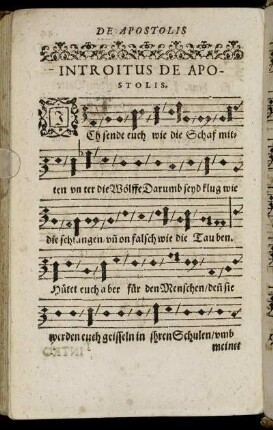 DE APOSTOLIS
INTROITUS DE APO-
STOLIS.
ICh sende euch wie die Schaf mit-
ten vn ter die Wölffe Darumb seyd klug wie
die schlangen/ vñ on falsch wie die Tau ben.
Hütet euch a ber für den Menschen/ deñ sie
werden euch geisseln in ihren Schulen/ vmb
meinet